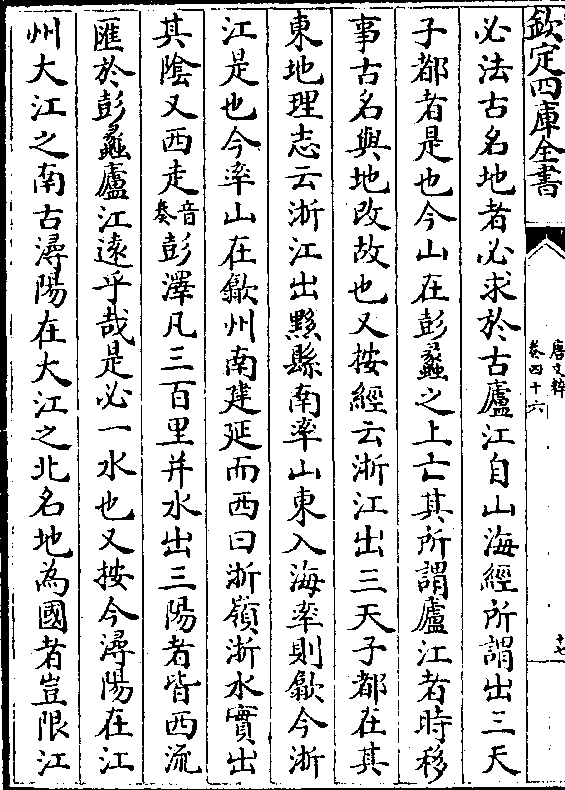 欽定四庫全書
唐文粹
卷四十六
十七
必法古名地者必求於古廬江自山海經所謂出三天
子都者是也今山在彭蠡之上亡其所謂廬江者時移
事古名與地改故也又按經云浙江出三天子都在其
東地理志云浙江出黟縣南率山東入海率則歙今浙
江是也今率山在歙州南建延而西曰浙嶺浙水實出
其陰又西走音奏彭澤凡三百里并水出三陽者皆西流
匯於彭蠡廬江遠乎哉是必一水也又按今潯陽在江
州大江之南古潯陽在大江之北名地為國者豈限江